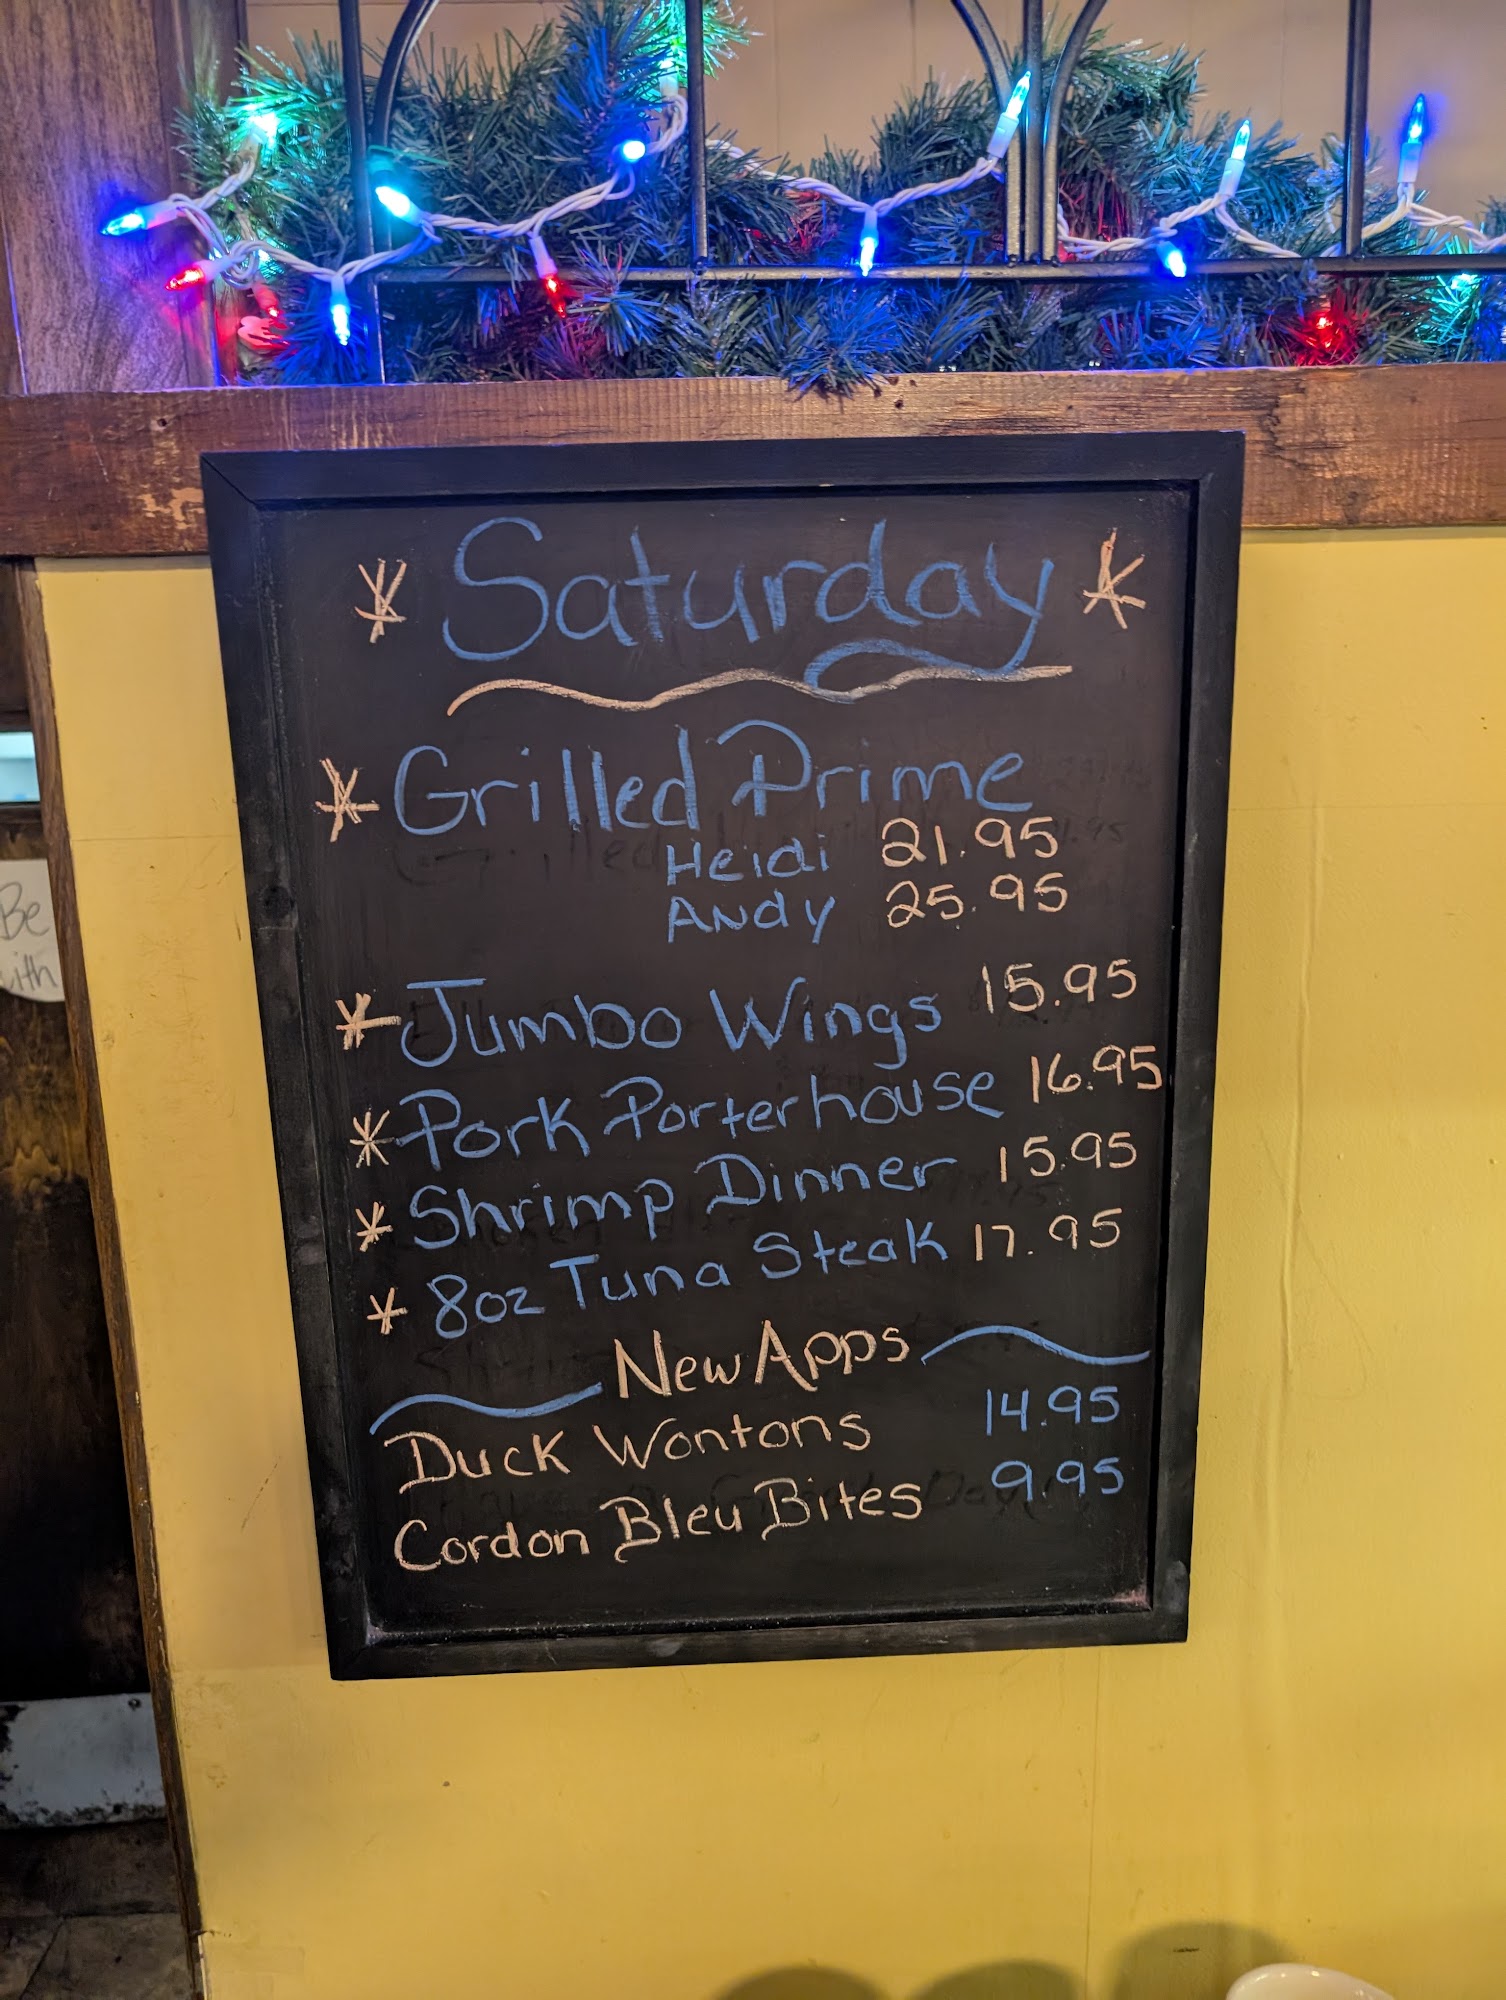 Saturday
Grilled Prime
Heidi 21.95
Andy 25.95
Jumbo Wings 15.95
Pork Porterhouse 16.95
Shrimp Dinner 15.95
8oz Tuna Steak 17.95
New Apps
Duck Wontons 14.95
Cordon Bleu Bites 9.95
Be
with